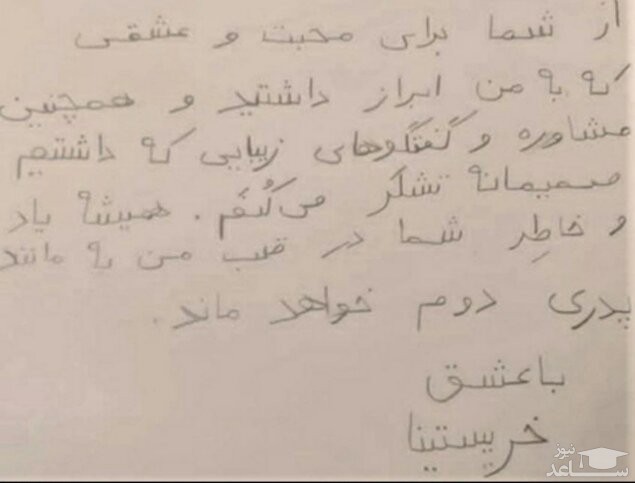 از شما برای محبت و عشقی
که به من ابراز داشتید و همچنین
مشاوره و گفتگوهای زیبایی که داشتیم
صمیمانه تشکر می‌کُنَم. همیشه یاد
و خاطِر شما در قلب من به مانند
پدری دوم خواهد ماند.
با عشق
خریستینا
نیوز
ساعد